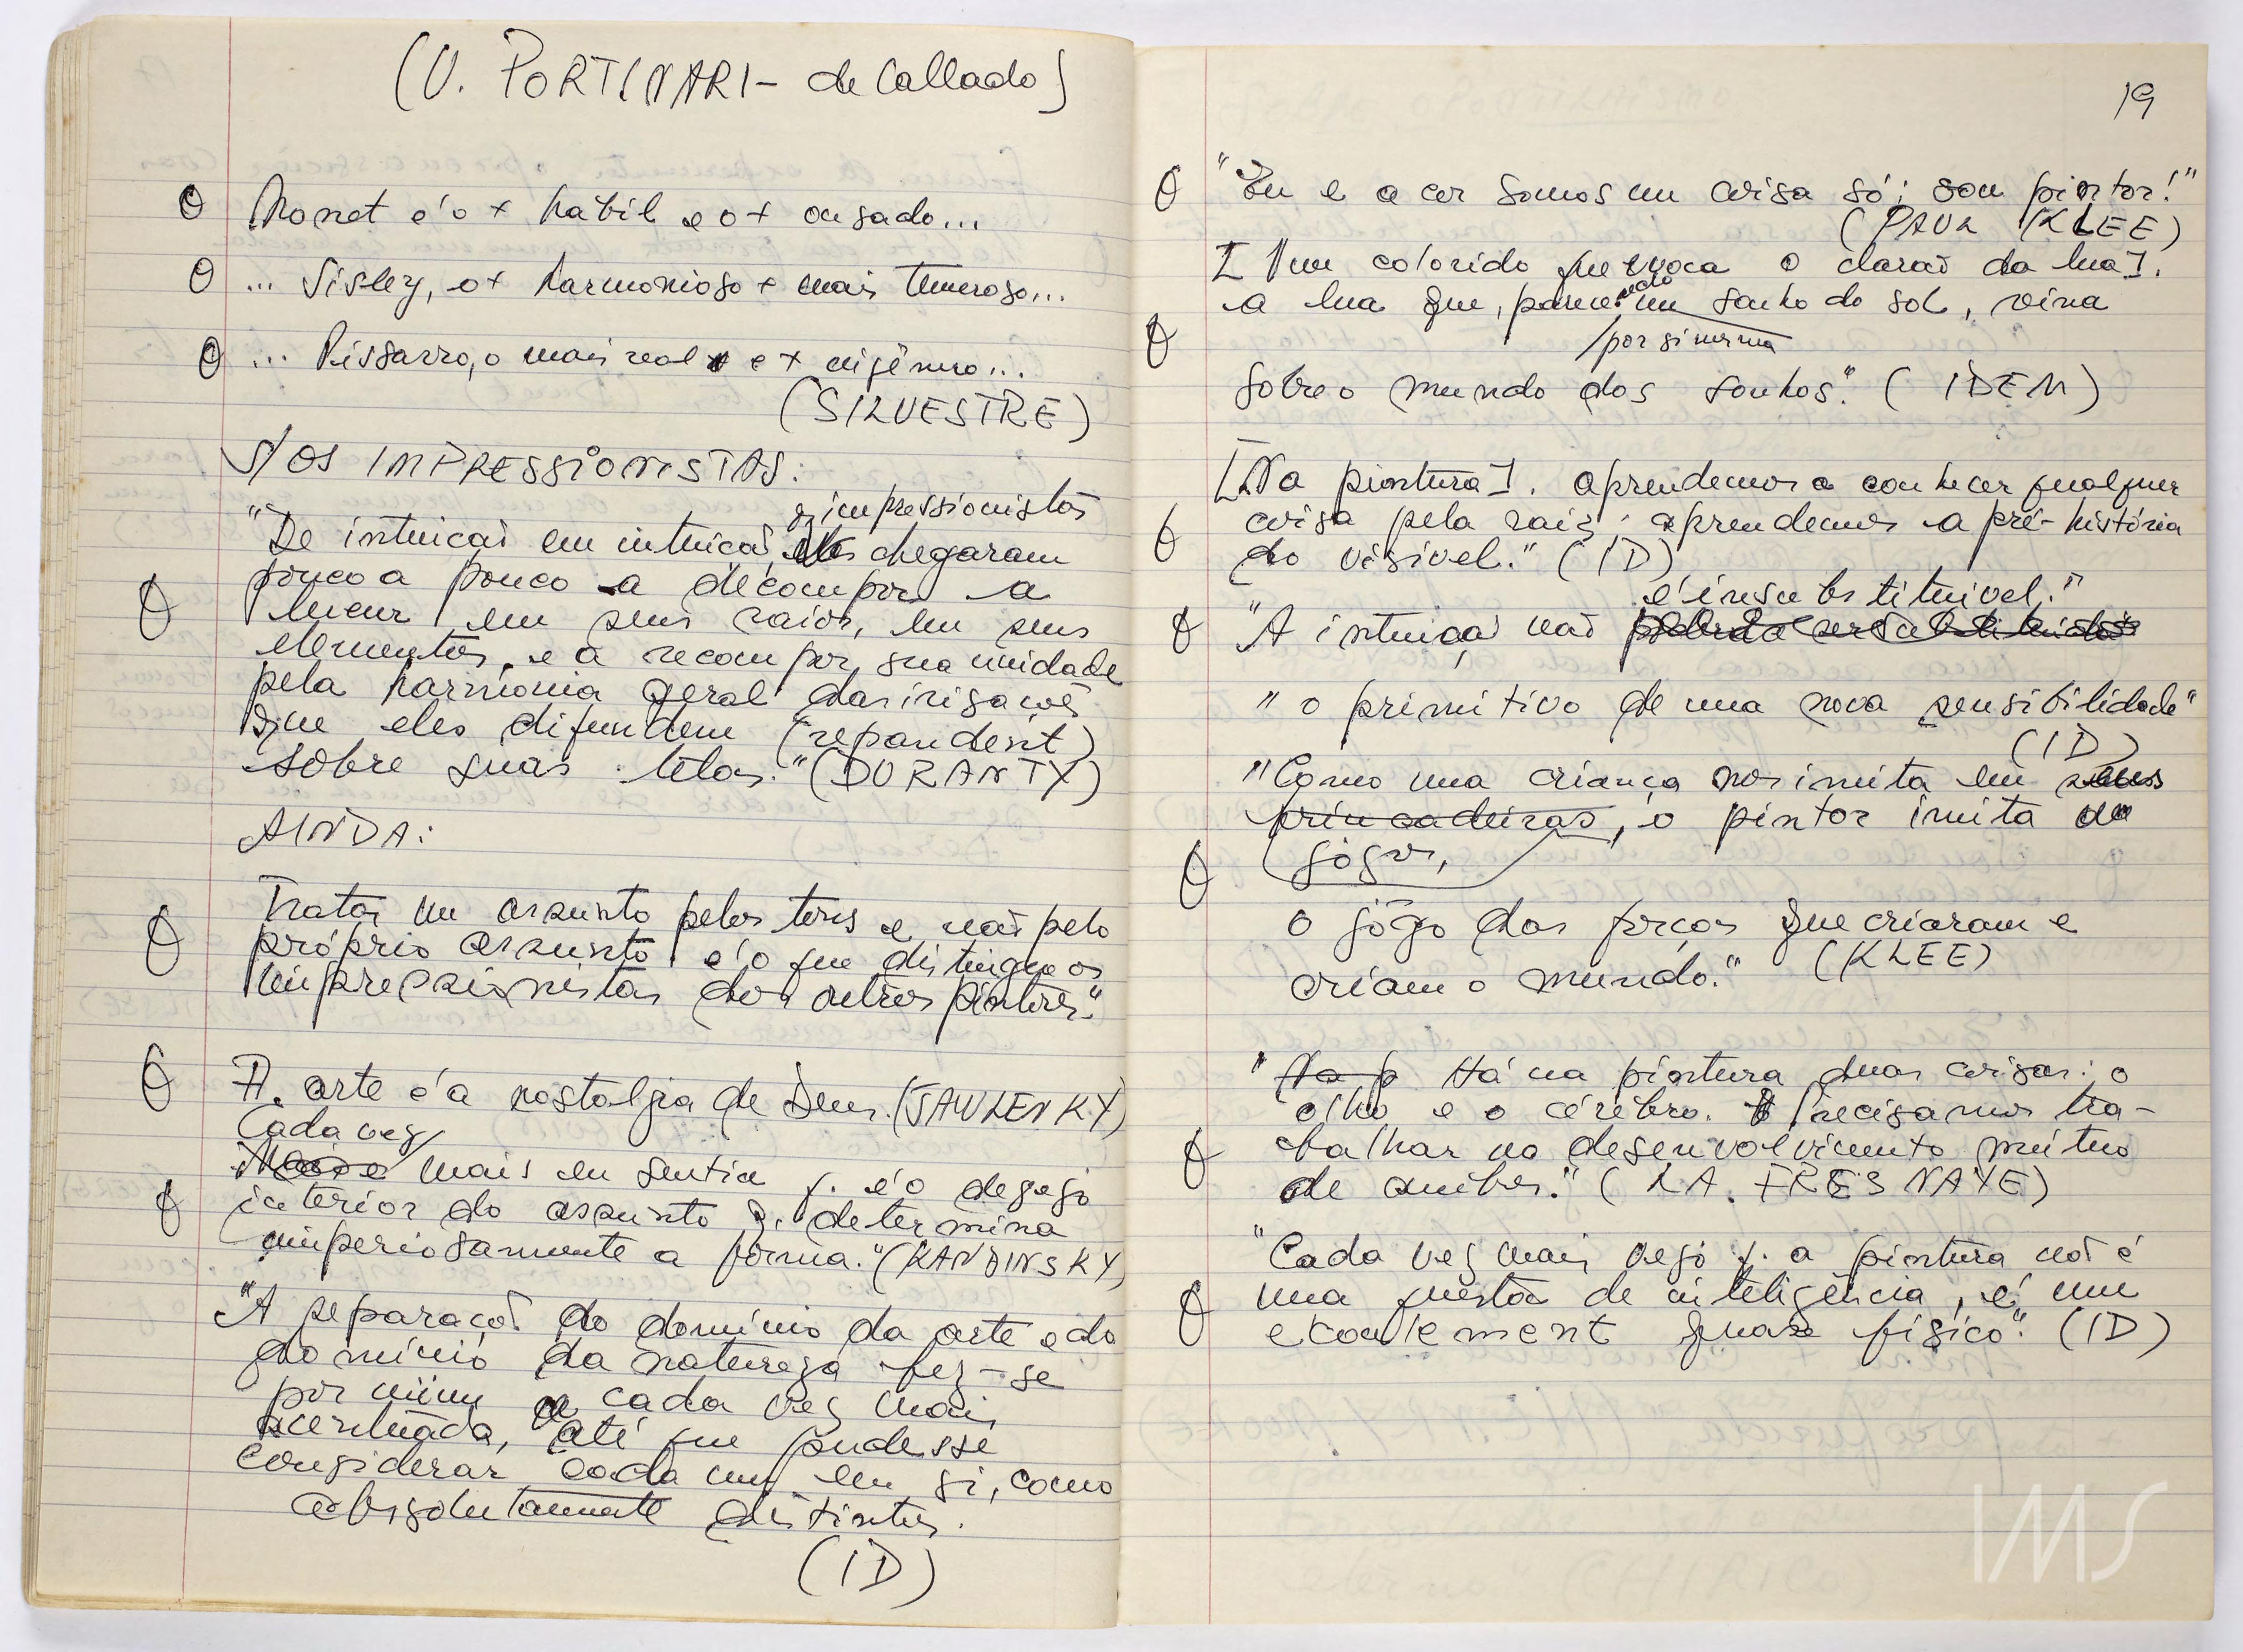 (V. PORTINARI - de Callado)
Monet é o + hábil e o + ousado...
... Sisley, o + harmonioso e mais temeroso...
... Pissarro, o mais real e + ingênuo...
(SILVESTRE)
S/ OS IMPRESSIONISTAS:
os impressionistas
"De intuição em intuição, eles chegaram
pouco a pouco a decompor a
lueur em seus raios, em seus
elementos, e a recompor sua unidade
pela harmonia geral das irisações
que eles difundem (repandent)
sobre suas telas." (DURANTY)
AINDA:
Tratar um assunto pelos tons e não pelo
próprio assunto é o que distingue os
impressionistas dos outros pintores."
A arte é a nostalgia de Deus. (JAWLENKY)
Cada vez
mais eu sentia q. é o desejo
interior do assunto q. determina
imperiosamente a forma." (KANDINSKY)
"A separação do domínio da arte e do
domínio da natureza fez-se
por mim cada vez mais
acentuada, até que pudesse
considerar cada um em si, como
absolutamente distintos.
(ID)
19
"Eu e a cor somos um coisa só; sou pintor!"
(PAUL KLEE)
[Num colorido que evoca o clarão da lua].
a lua que, parecendo um sonho do sol, reina
por si mesma
sobre o mundo dos sonhos." (IDEM)
[Na pintura]. aprendemos a conhecer qualquer
coisa pela raiz; aprendemos a pré-história
do visível." (ID)
é insubstituível."
"A intuição não poderá ser substituída
"o primitivo de uma nova sensibilidade"
(ID)
"Como uma criança nos imita em seus
brincadeiras, o pintor imita
jogos,
o jôgo das forças que criaram e
criam o mundo." (KLEE)
"Na p Há na pintura duas coisas: o
olho e o cérebro. Precisamos tra-
balhar no desenvolvimento mútuo
de ambos." (LA FRESNAYE)
"Cada vez mais vejo q. a pintura não é
uma questão de inteligência, é um
ecoulement quase físico." (ID)
IMS